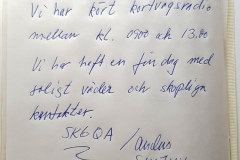 Vi har kört kortvågsradio
mellan kl. 0900 och 13.00
Vi har haft en fin dag med
soligt väder och skapliga
kontakter.
SK6QA /Anders